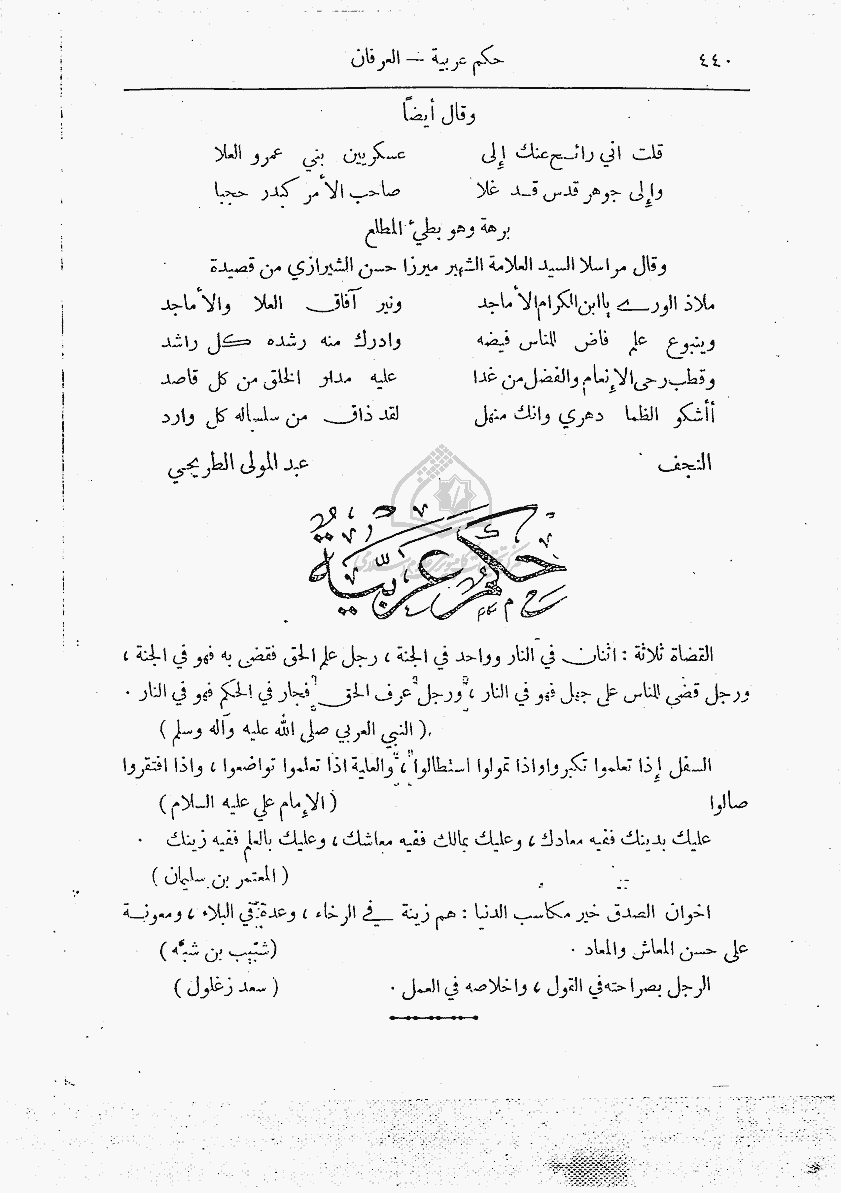 ٤٤٠ حكم عربية — العرفان
وقال أيضاً
قلت اني رائح عنك إلى عسكريين بني عمرو العلا
وإلى جوهر قدس قد غلا صاحب الأمر كبدر حجبا
برهة وهو بطيء المطلع
وقال مراسلا السيد العلامة الشهير ميرزا حسن الشيرازي من قصيدة
ملاذ الورے ياابن الكرام الأماجد ونير آفاق العلا والأماجد
وينبوع علم فاض للناس فيضه وادرك منه رشده كل راشد
وقطب رحى الإنعام والفضل من غدا عليه مدار الخلق من كل قاصد
أأشكو الظما دهري وانك منهل لقد ذاق من سلساله كل وارد
النجف عبد المولى الطريحي
حكم عربية
القضاة ثلاثة : اثنان في النار وواحد في الجنة ، رجل علم الحق فقضى به فهو في الجنة ،
ورجل قضى للناس على جهل فهو في النار ، ورجل عرف الحق فجار في الحكم فهو في النار .
( النبي العربي صلى الله عليه وآله وسلم )
السفل إذا تعلموا تكبروا واذا تمولوا استطالوا ، والعلية اذا تعلموا تواضعوا ، واذا افتقروا
صالوا ( الإمام علي عليه السلام )
عليك بدينك ففيه معادك ، وعليك بمالك ففيه معاشك ، وعليك بالعلم ففيه زينك .
( المعتمر بن سليمان )
اخوان الصدق خير مكاسب الدنيا : هم زينة في الرخاء ، وعدة في البلاء ، ومعونة
على حسن المعاش والمعاد . (شبيب بن شبه )
الرجل بصراحته في القول ، واخلاصه في العمل . ( سعد زغلول )